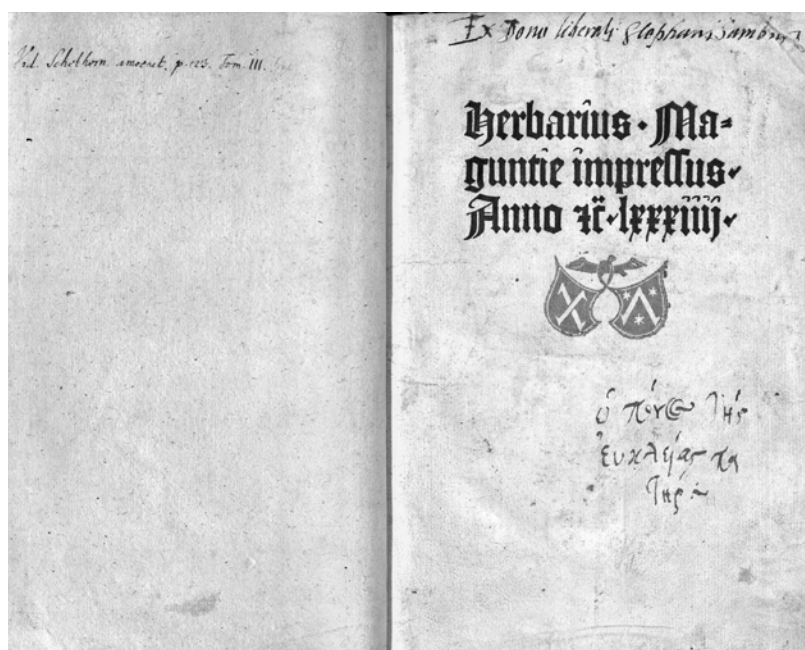 Vid. Schelhorn amoenit. p. 123. Tom. III.
Ex Dono liberali
Herbarius · Ma⸗
guntie impressus·
Anno ⁊c̄·lxxxiiij·
ὁ πόνος τῆς
ἐυκλείας πα
τήρ